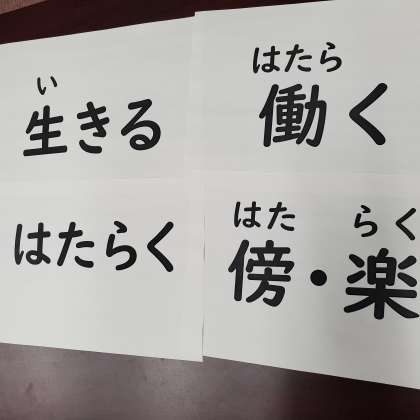 い
生きる
はたら
働く
はたらく
はた らく
傍・楽